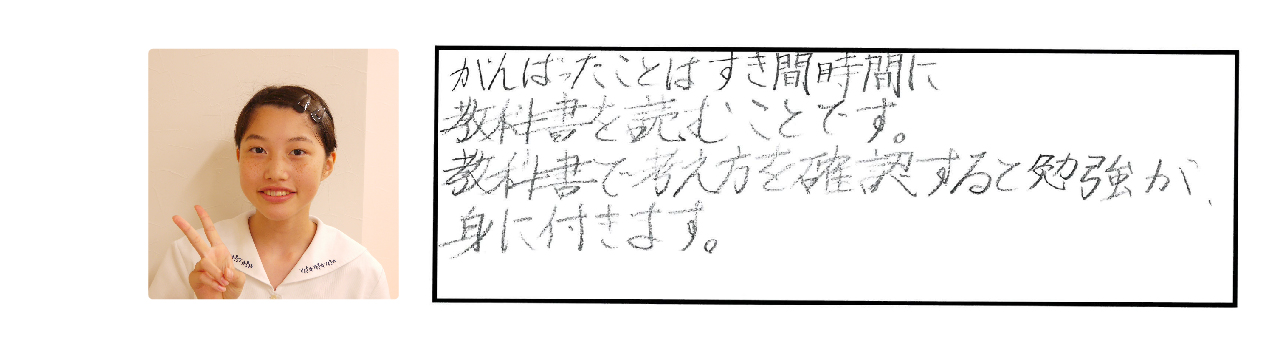 がんばったことはすき間時間に
教科書を読むことです。
教科書で考え方を確認すると勉強が、
身に付きます。